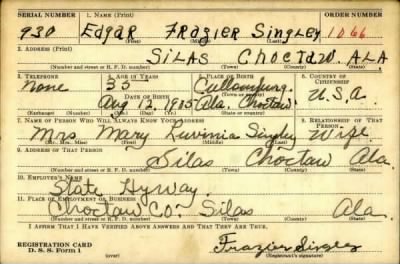 SERIAL NUMBER 1. NAME (Print) ORDER NUMBER
930 Edgar Frazier Singley 1066
(First) (Middle) (Last)
2. ADDRESS (Print)
SILAS CHOCTAW ALA
(Number and street or R. F. D. number) (Town) (County) (State)
3. TELEPHONE 4. AGE IN YEARS 5. PLACE OF BIRTH 6. COUNTRY OF CITIZENSHIP
None 35 Cullomburg
DATE OF BIRTH (Town or county)
Aug 12, 1905 Ala. Choctaw U.S.A.
(Exchange) (Number) (Mo.) (Day) (Yr.) (State or country)
7. NAME OF PERSON WHO WILL ALWAYS KNOW YOUR ADDRESS 8. RELATIONSHIP OF THAT PERSON
Mrs Mary Luvinia Singley Wife
(Mr., Mrs., Miss) (First) (Middle) (Last)
9. ADDRESS OF THAT PERSON
Silas Choctaw Ala
(Number and street or R. F. D. number) (Town) (County) (State)
10. EMPLOYER'S NAME
State Hyway.
11. PLACE OF EMPLOYMENT OR BUSINESS
Choctaw Co. Silas Ala.
(Number and street or R. F. D. number) (Town) (County) (State)
I AFFIRM THAT I HAVE VERIFIED ABOVE ANSWERS AND THAT THEY ARE TRUE.
REGISTRATION CARD Frazier Singley
D. S. S. Form 1 (Registrant's signature)